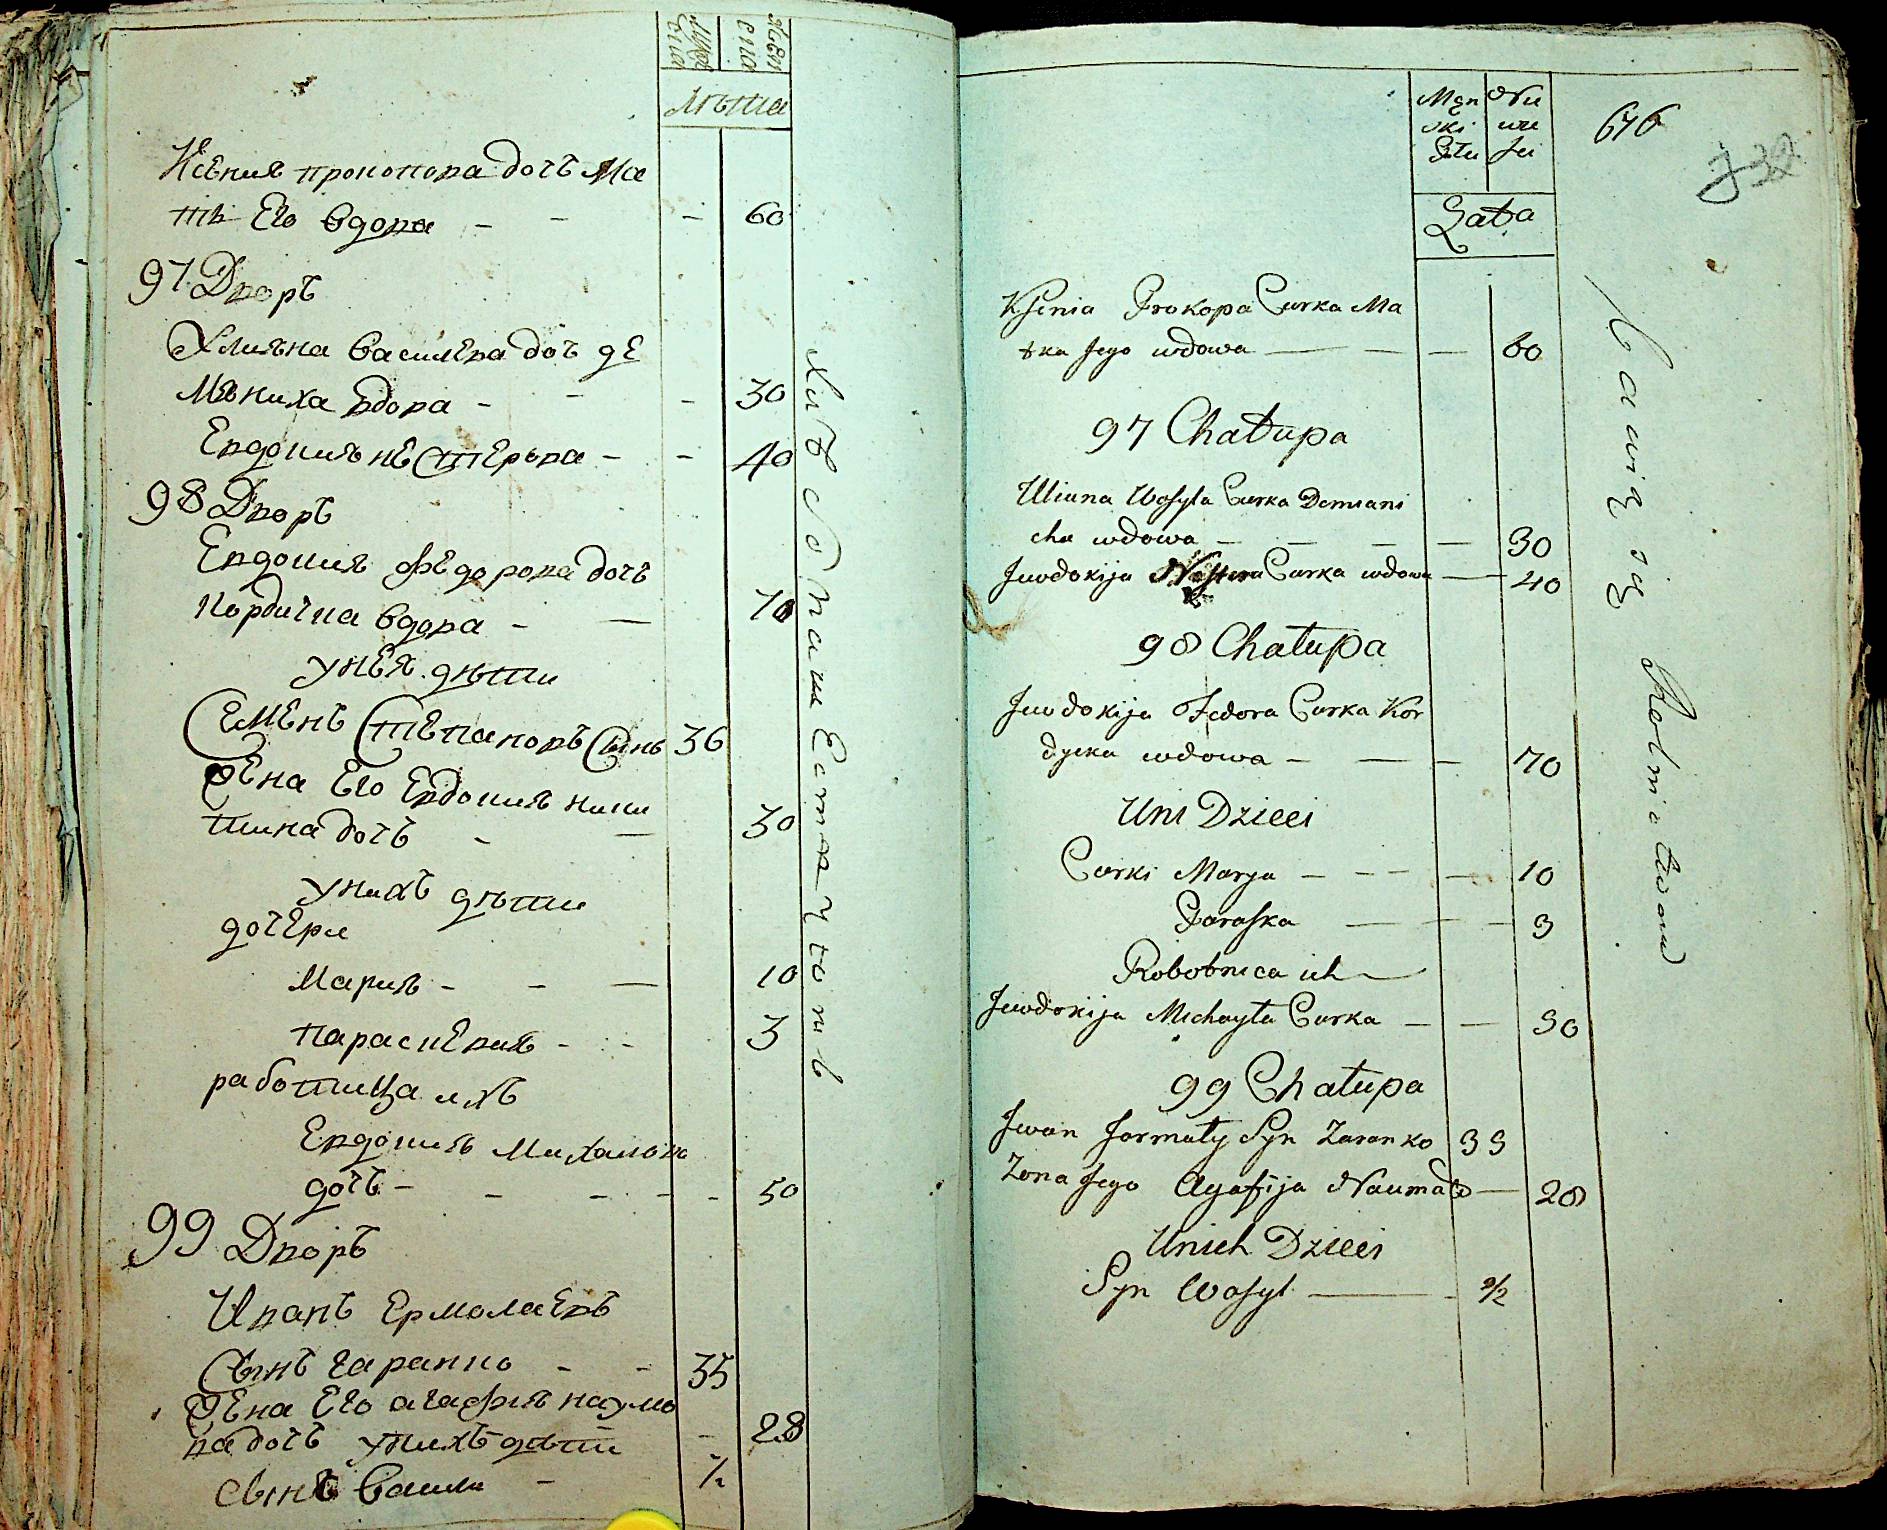 Мужеска
женска
лѣта
Ксения прокопова дочь Ма
ти Его вдова - - - 60
97 Дворъ
Улияна василева доч де
мяниха вдова - - - 30
Евдокия нестерова - - 40
98 Дворъ
Евдокия федорова дочь
Кордичка вдова - — 70
унея дѣти
Семенъ Степановъ Сынъ 36
жена Его Евдокия ники
тина дочь - — 30
унихъ дѣти
дочери
Мария - - — 10
параскевия - - - 3
работница ихъ
Евдокия Михайлова
дочь - - - - - 50
99 Дворъ
Иванъ Ермолаевъ
Сынъ Таранко - - 35
жена Его агафия наумо
ва дочь унихъ дѣти - 28
сынъ Васили - ½
Męn
ski
Płci
Żeń
skiej
Lata
646
Ksenia Prokopa Curka Ma
tka Jego wdowa — — — 60
97 Chałupa
Uliana Wasyla Curka Demiani
cha wdowa — — — — 30
Jewdokija Nestera Curka wdowa — 40
98 Chałupa
Jewdokija Fedora Curka Kor
dycka wdowa — — — 70
Uni Dzieci
Curki Marya — — — — 10
Paraska — — — 3
Robotnica ich
Jewdokija Michayła Curka — — 50
99 Chałupa
Iwan Jarmoły Syn Taranko 35
Żona Jego Agafija Nauma — 28
Unich Dzieci
Syn Wasyl — ½